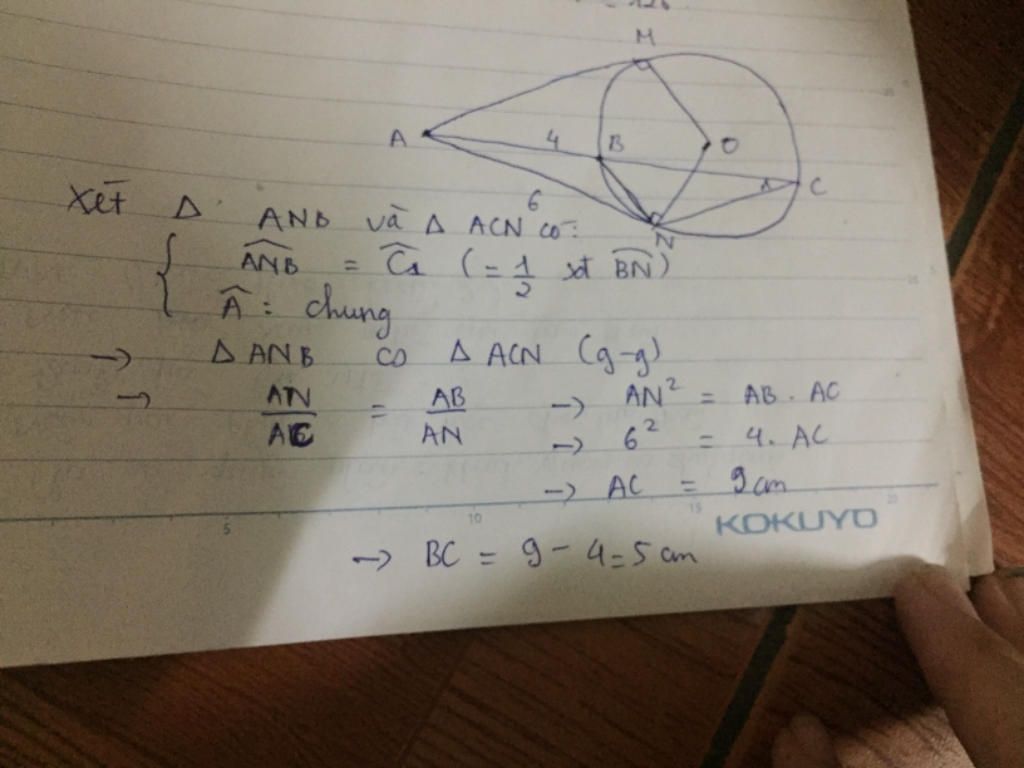 M
A 4 B O
C
6
N
Xét Δ ANB và Δ ACN có:
ANB = C1 (= 1/2 sđt BN)
A : chung
→ Δ ANB co Δ ACN (g-g)
→ AN/AC = AB/AN → AN² = AB . AC
→ 6² = 4. AC
→ AC = 9cm
5 10 15 20
KOKUYO
→ BC = 9 - 4 = 5 cm